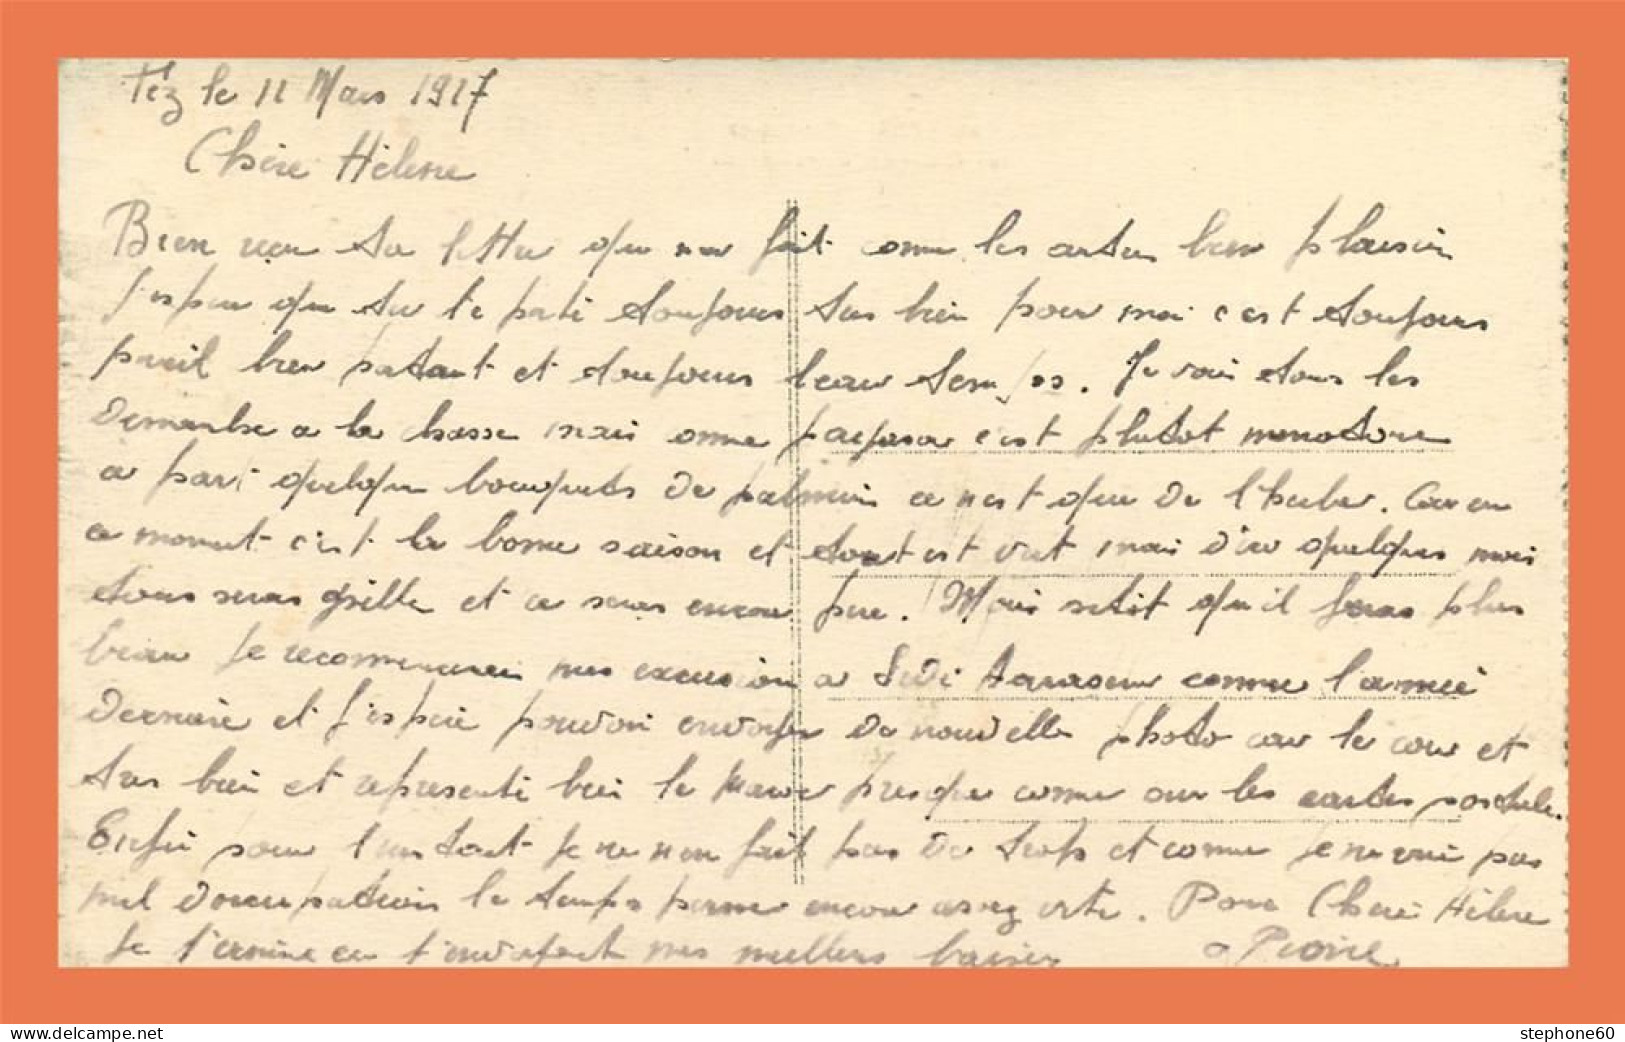 Fez le 11 Mars 1917
Chère Hélène
Bien reçu ta lettre qui me fait comme les autres bien plaisir
J'espere que tu te porte toujours tres bien pour moi c'est toujours
pareil bien portant et toujours beau temps. Je vais tous les
dimanche a la chasse mais comme c'est plutot monotone
a part quelque bouquets de palmier ce n'est que de l'herbe. Car en
ce moment c'est la bonne saison et tout est vert mais d'ici quelques mois
tous seras grillé et ce seras encore pire. Mais sitôt qu'il feras plus
beau je recommencerai mes excursion a Sidi comme l'année
derniere et j'espère pouvoir envoyer de nouvelle photo car le cour et
tres bien et represente bien le Maroc presque comme sur les cartes postale.
Enfin pour l'instant je ne m'en fait pas de trop et comme je ne suis pas
mal d'occupation le temps passe encore assez vite. Pour Chère Hélène
Je termine en t'envoyant mes meilleurs baisers Pierre
delcampe.net
stephone60